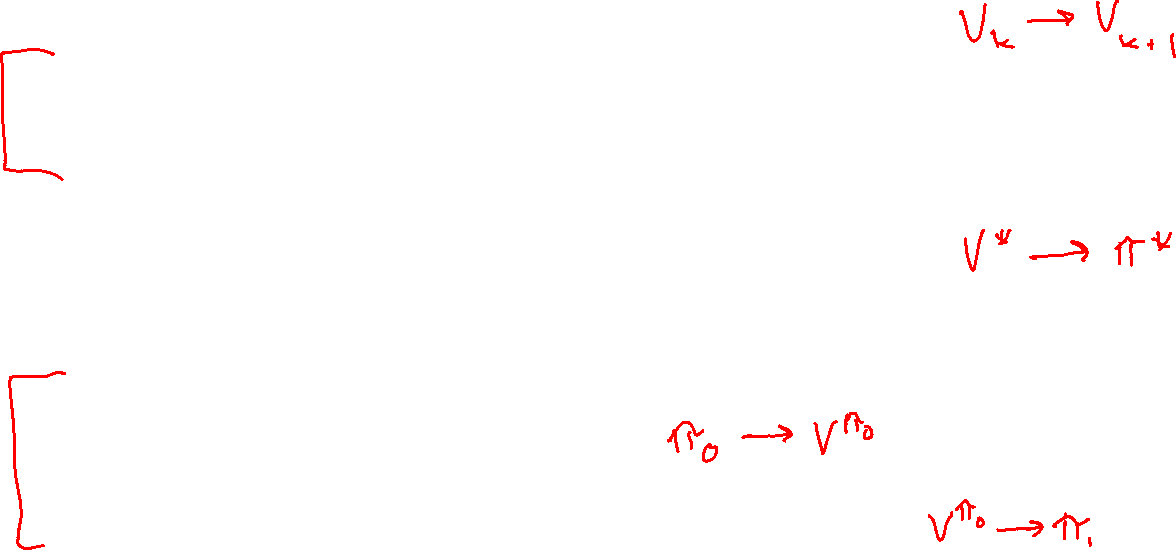 V_k → V_{k+1}
V* → π*
π_0 → V^{π_0}
V^{π_0} → π_1